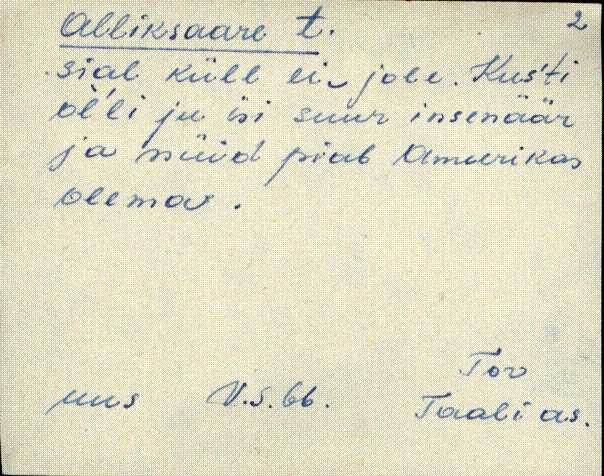 Alliksaare t. 2
sial küll ei jole. Kuśti
ol'li ju isi suur insenäär
ja nüüd piab Ameerikas
olema.
Tov
uus V.S. 66. Taali as.